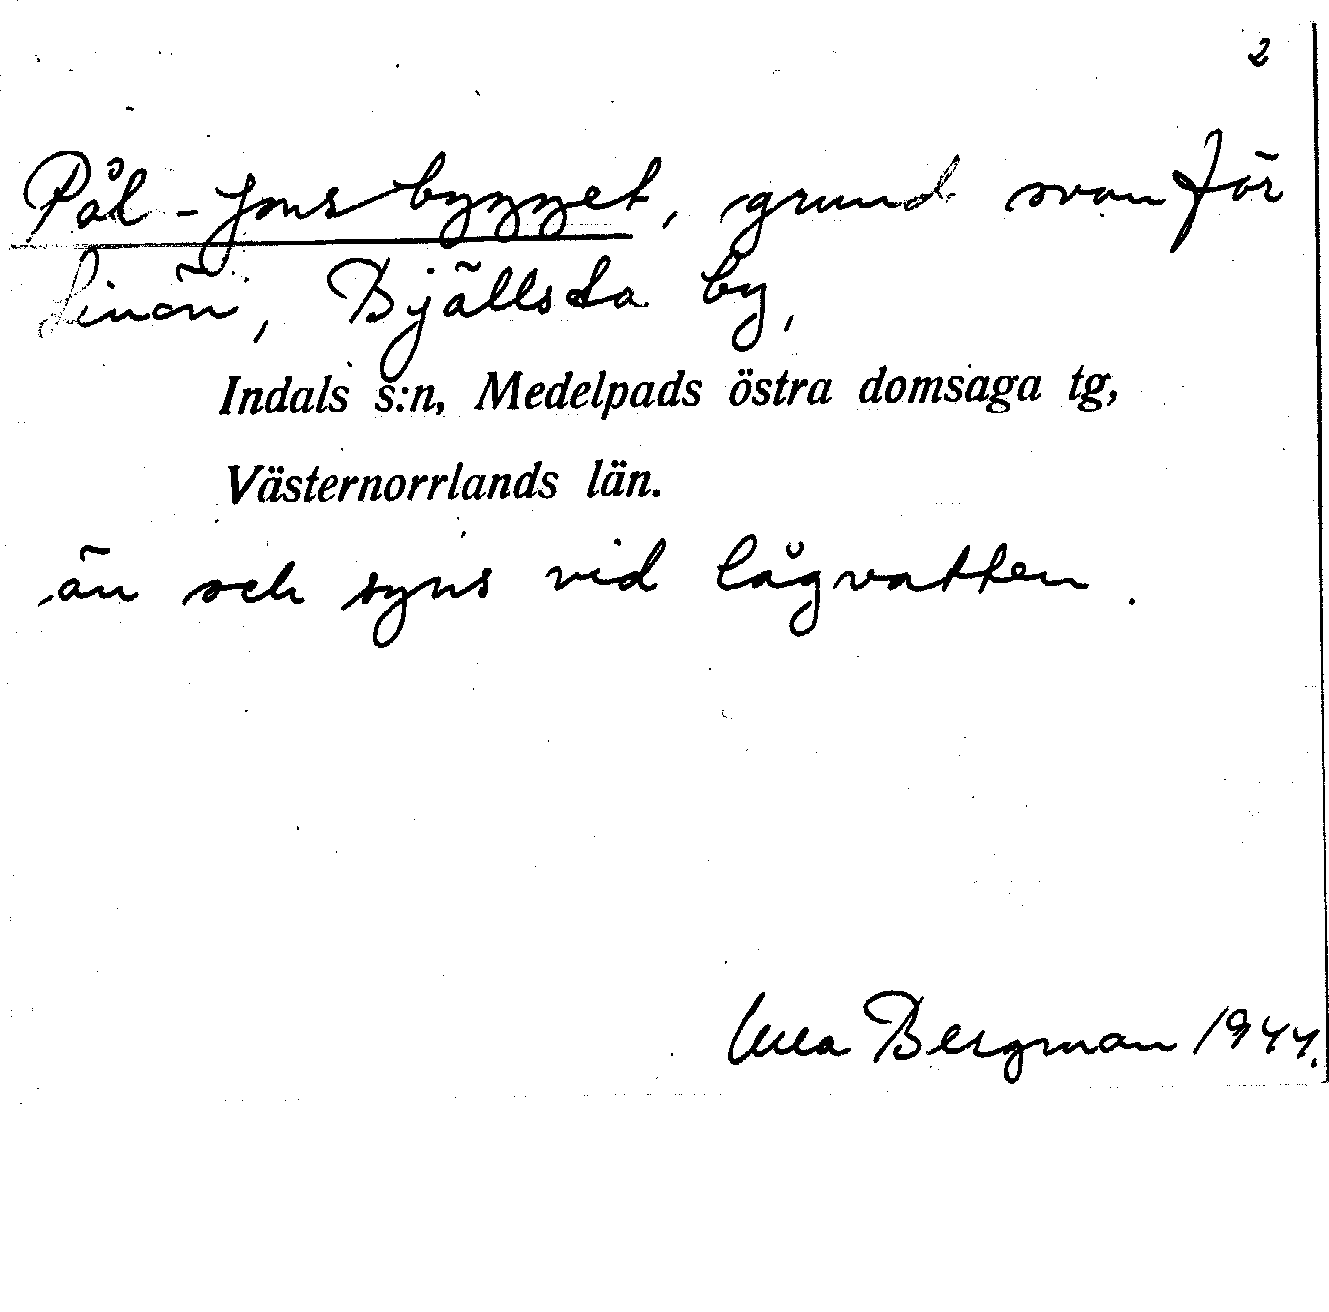 2
Pål-Jonsbygget, grund ovanför
Linön, Bjällsta by,
Indals s:n, Medelpads östra domsaga tg,
Västernorrlands län.
än och syns vid lågvatten.
Bergman 1944.